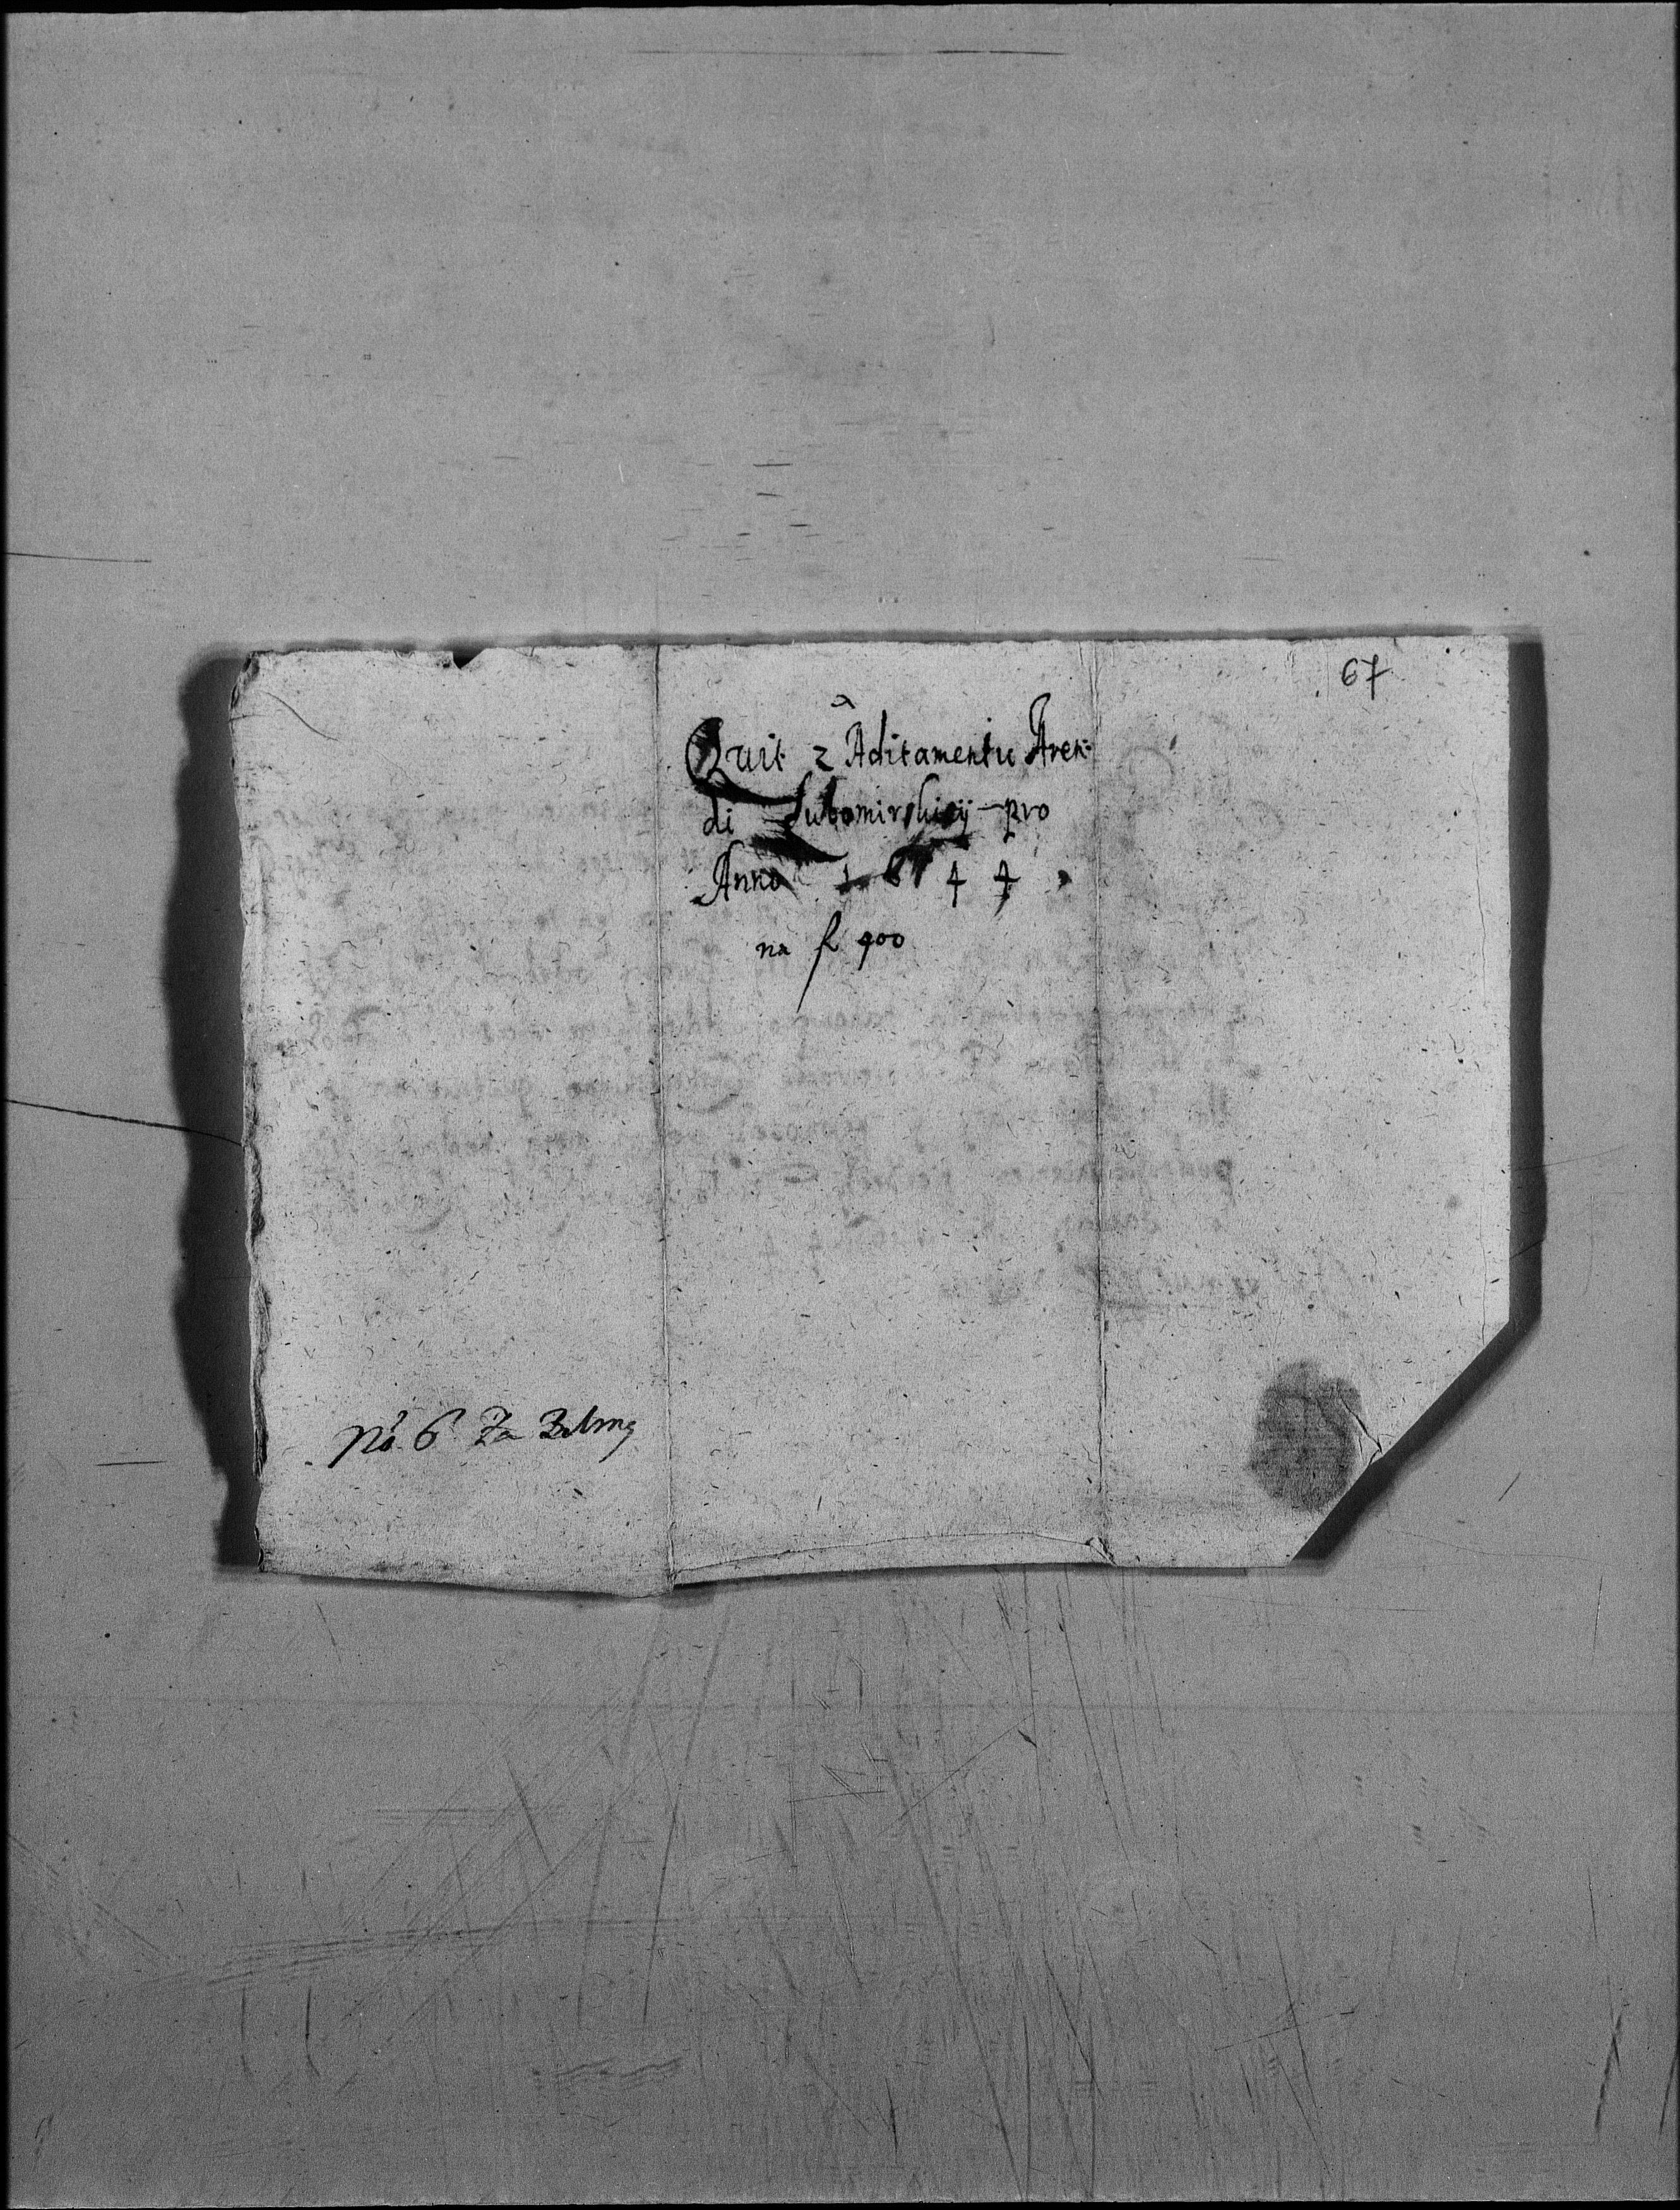 67
Quit z Aditamentu Aren-
di Lubomirskiey pro
Anno 1644
na fl 900
No 6 Za